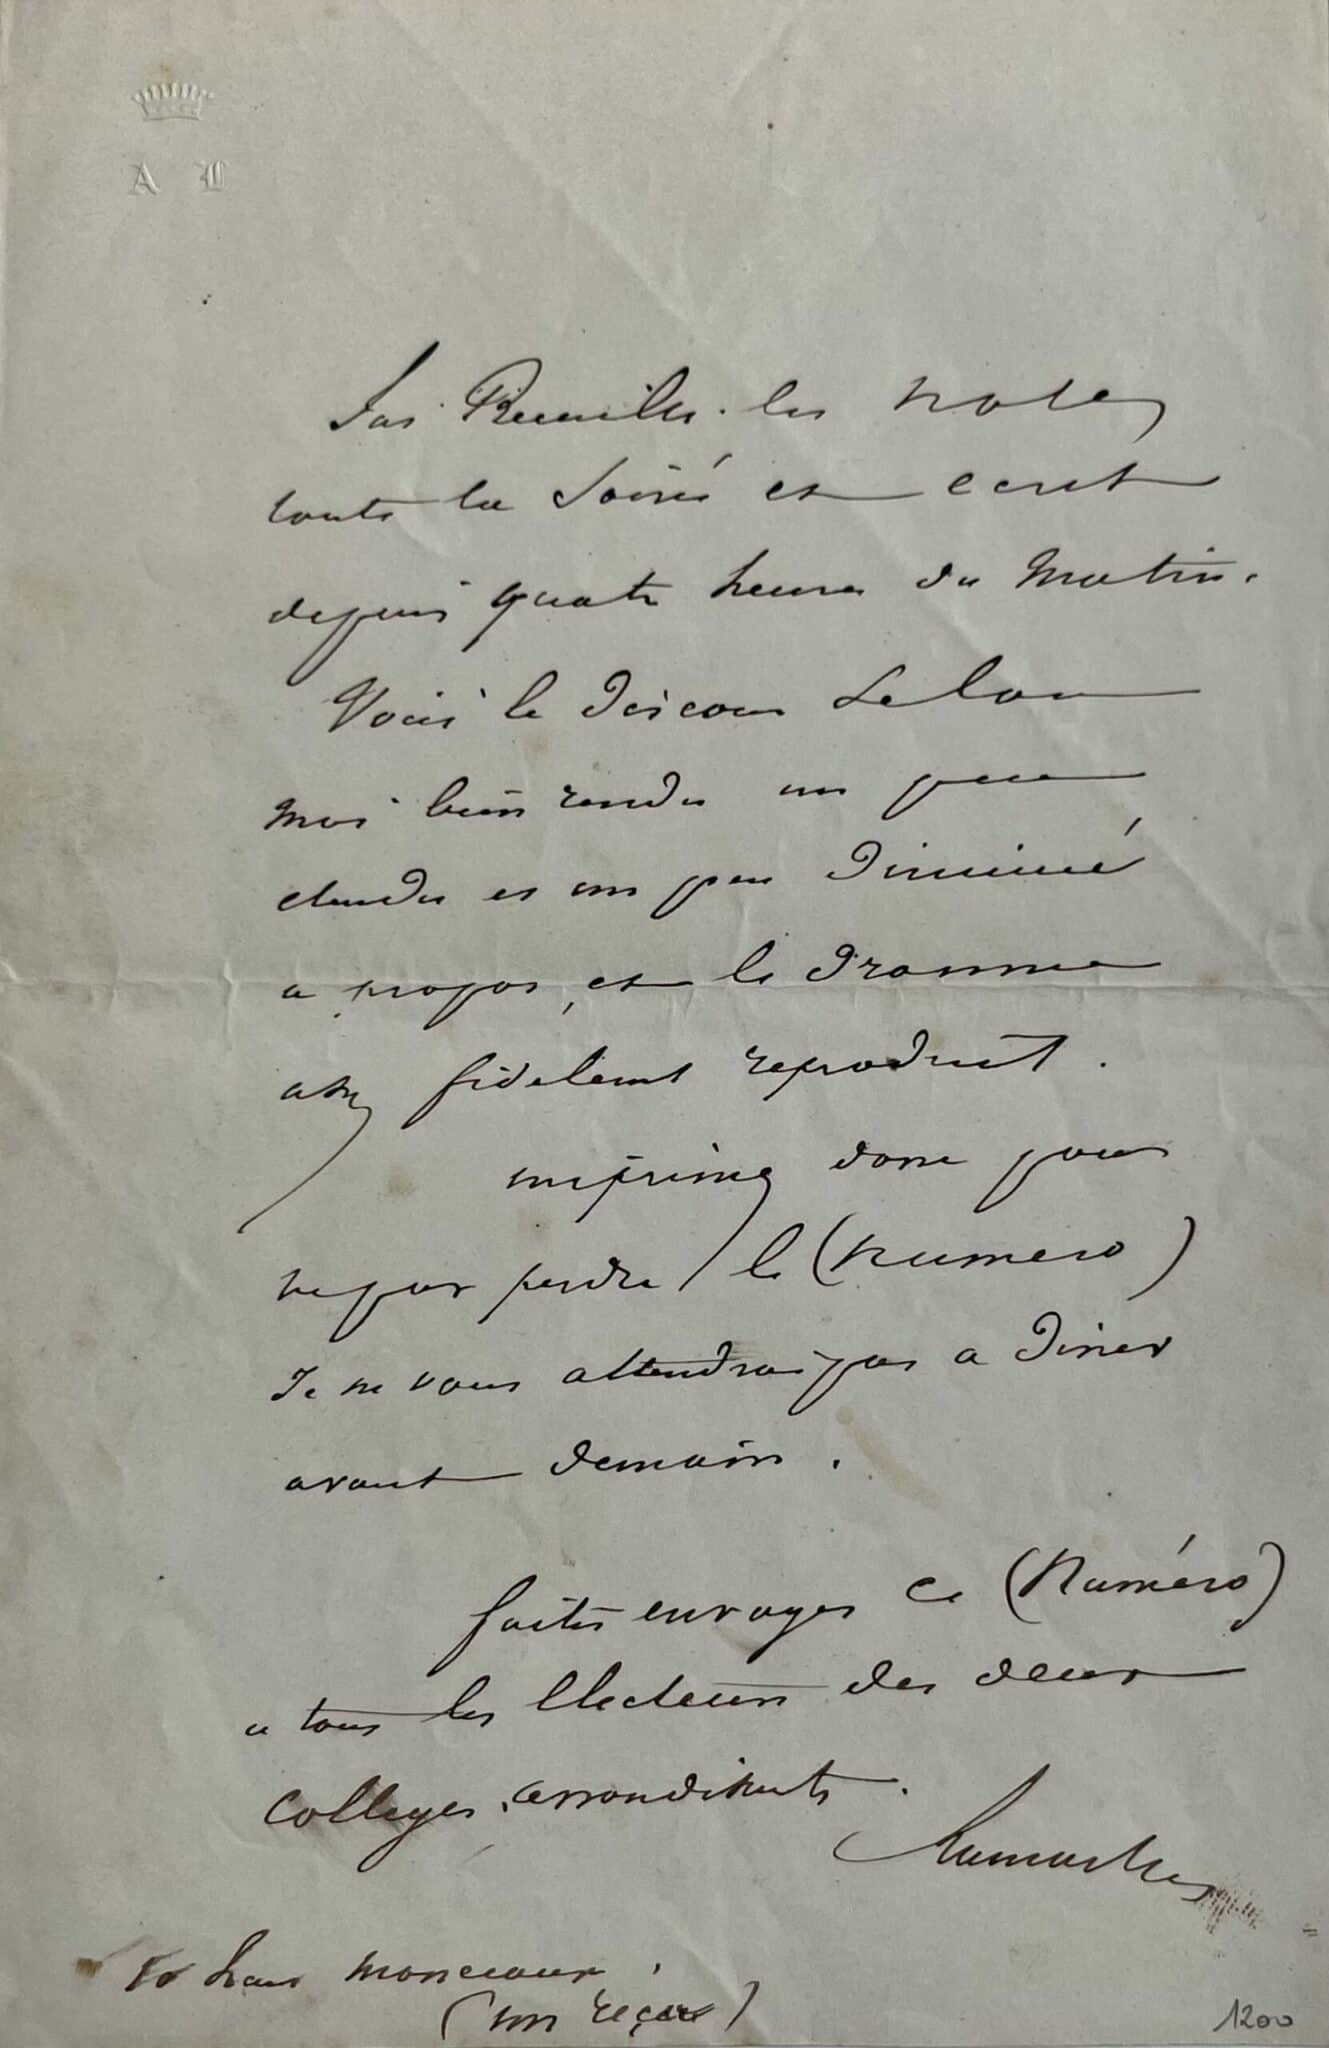 A L
J'ai Recueilli les notes
toute la Soirée et ecrit
depuis quatre heures du Matin.
Voici le discours selon
moi bien rendu un peu
etendu et un peu diminué
a propos, et le dramme
assez fidelemt reproduit.
imprimez donc pour
ne pas perdre le (numero)
Je ne vous attendrai pas a diner
avant demain.
faites envoyer ce (Numéro)
a tous les Electeurs des deux
colleges, arrondissts.
Lamartine
monceaux
(un reçu)
1200